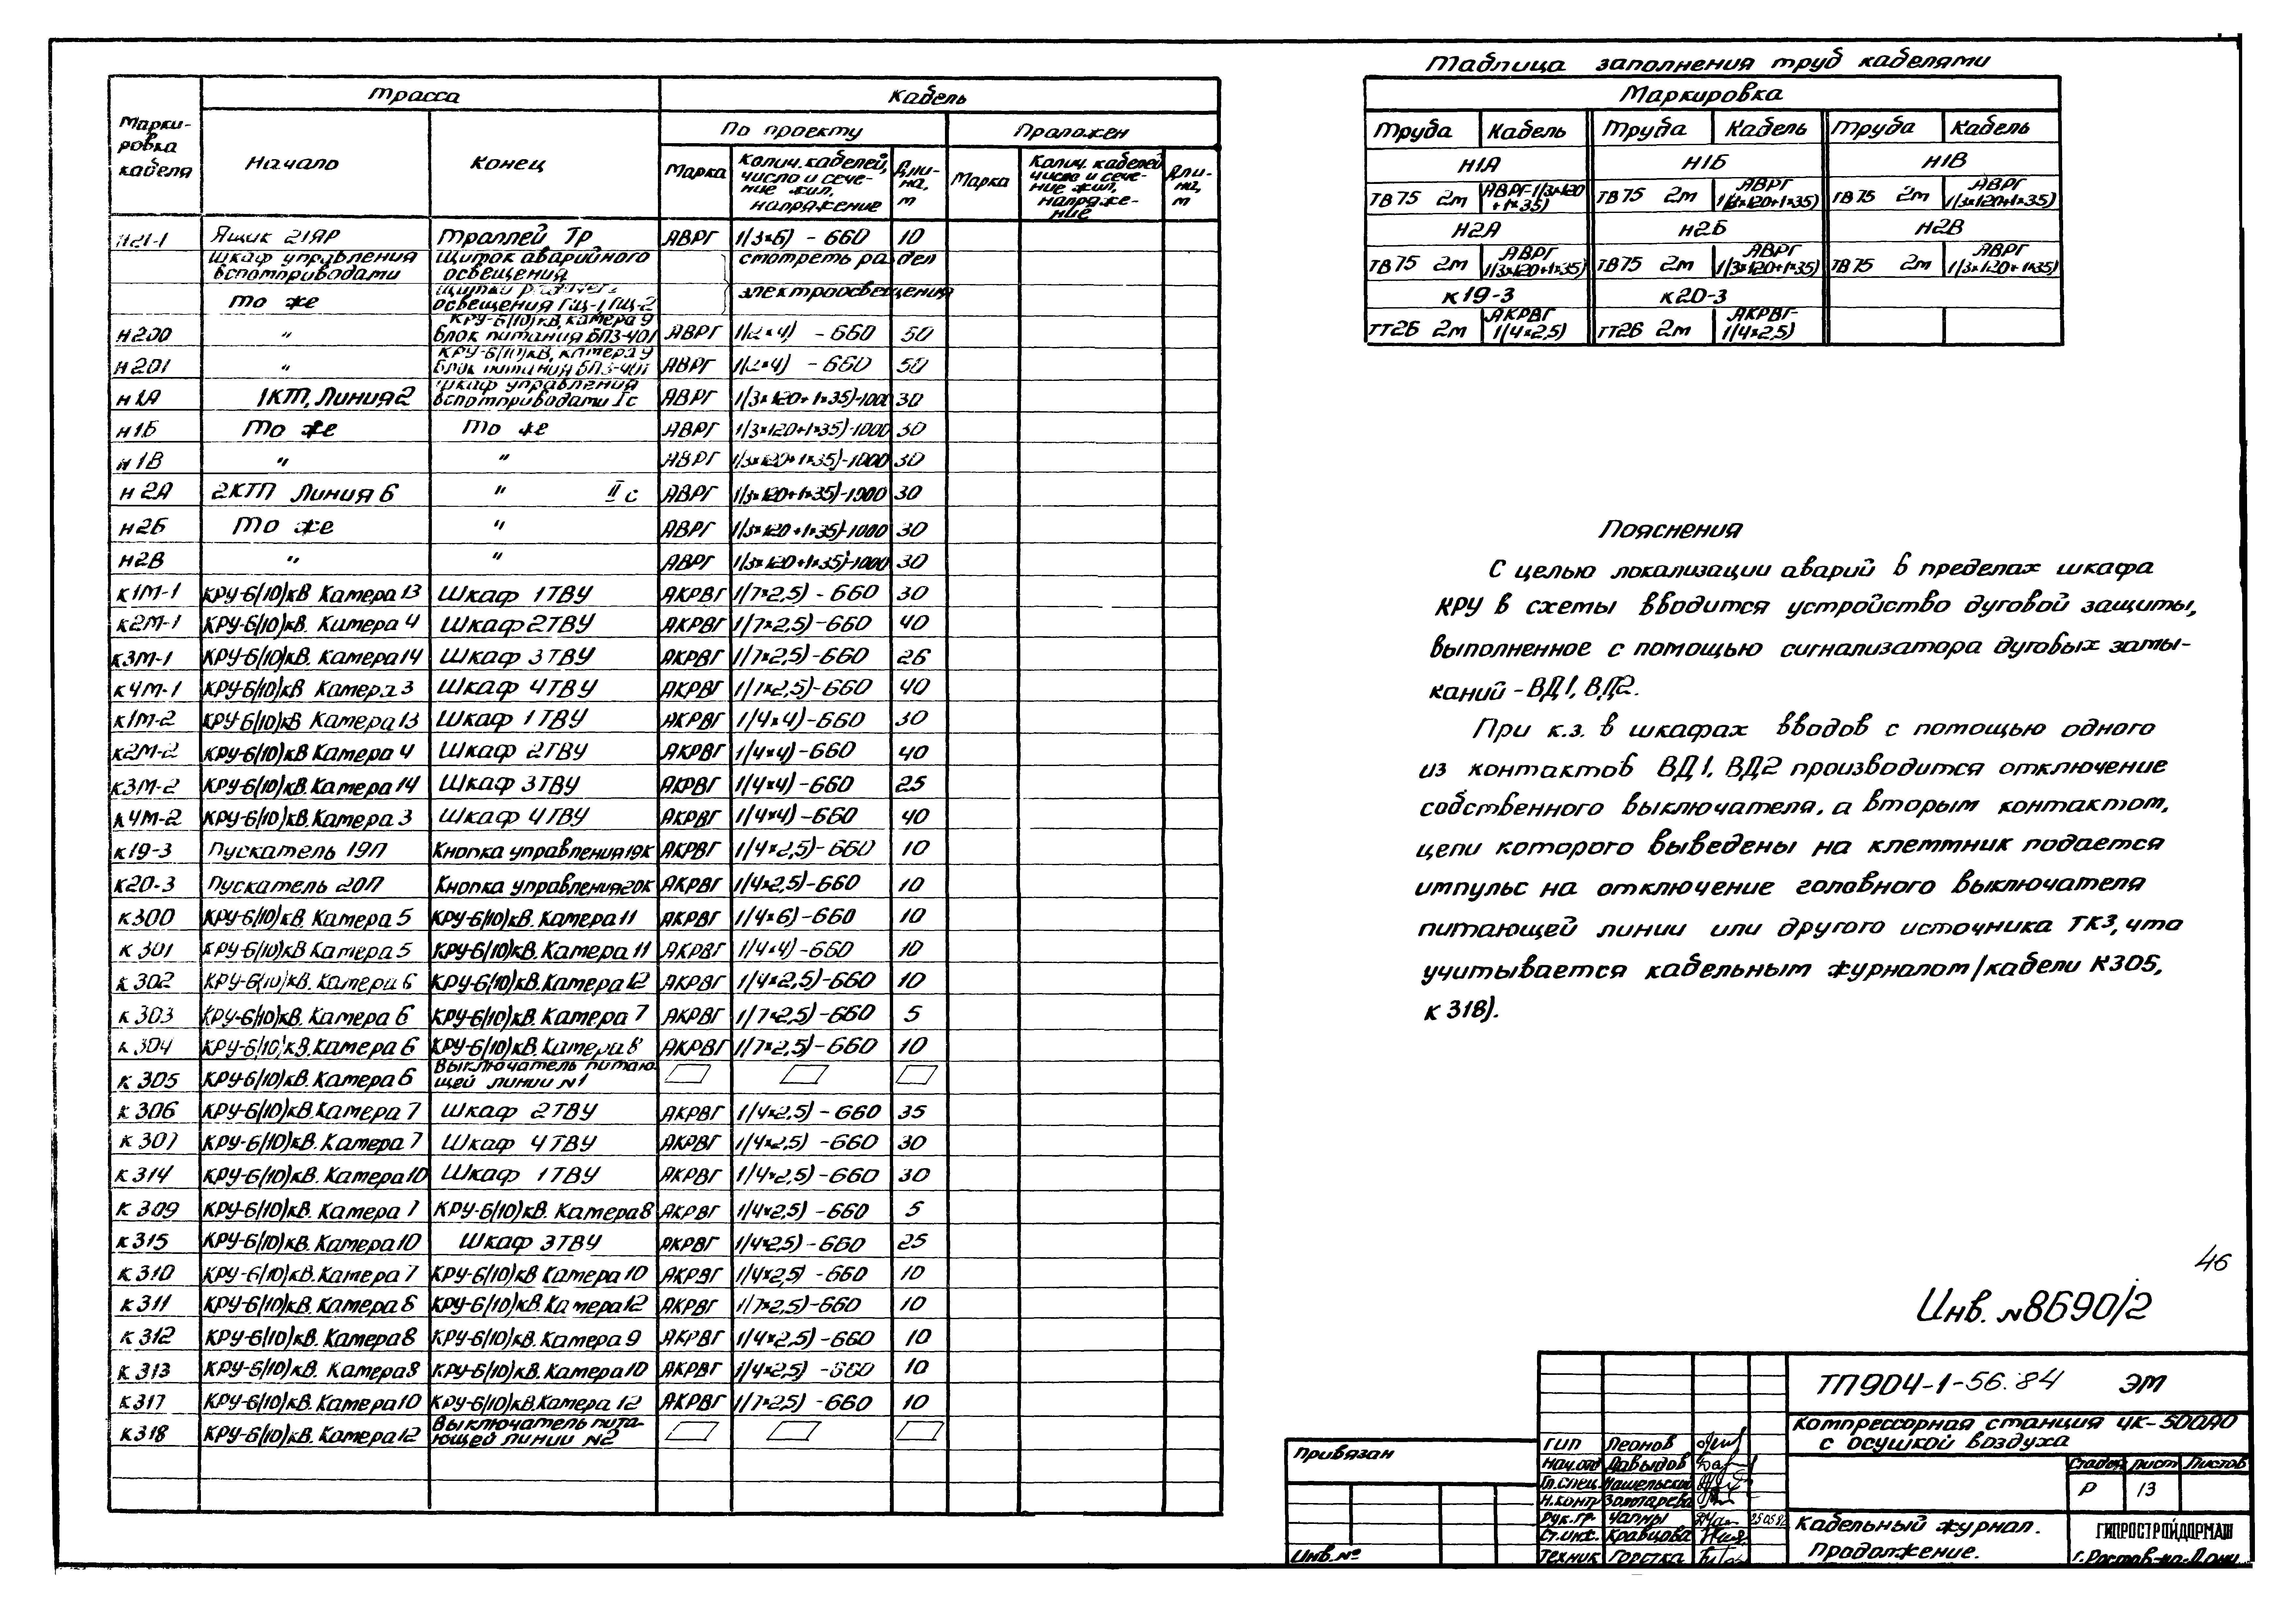 Трасса
Кабель
Марки-
ровка
кабеля
Начало
Конец
По проекту
Проложен
Марка
Колич. кабелей,
число и сече-
ние жил,
напряжение
Дли-
на,
м
Марка
Колич. кабелей
число и сече-
ние жил,
напряже-
ние
Дли-
на,
м
н21-1 Ящик 21ЯР Троллей Тр АВРГ 1(3×6) - 660 10
Шкаф управления вспомприводами Щиток аварийного освещения смотреть раздел
То же освещения ГЩ-1, ГЩ-2 электроосвещения
н200 " КРУ-6(10)кВ, камера 9 блок питания БПЗ-401 АВРГ 1(2×4) - 660 50
н201 " КРУ-6(10)кВ, камера 9 блок питания БПЗ-401 АВРГ 1(2×4) - 660 50
н1А 1КТП, Линия 2 Шкаф управления вспомприводами Iс АВРГ 1(3×120+1×35)-1000 30
н1Б То же То же АВРГ 1(3×120+1×35)-1000 30
н1В " " АВРГ 1(3×120+1×35)-1000 30
н2А 2КТП Линия 6 " IIс АВРГ 1(3×120+1×35)-1000 30
н2Б То же " АВРГ 1(3×120+1×35)-1000 30
н2В " " АВРГ 1(3×120+1×35)-1000 30
к1М-1 КРУ-6(10)кВ Камера 13 Шкаф 1ТВУ АКРВГ 1(7×2,5) - 660 30
к2М-1 КРУ-6(10)кВ. Камера 4 Шкаф 2ТВУ АКРВГ 1(7×2,5)-660 40
к3М-1 КРУ-6(10)кВ. Камера 14 Шкаф 3ТВУ АКРВГ 1(7×2,5)-660 26
к4М-1 КРУ-6(10)кВ Камера 3 Шкаф 4ТВУ АКРВГ 1(7×2,5)-660 40
к1М-2 КРУ-6(10)кВ Камера 13 Шкаф 1ТВУ АКРВГ 1(4×4)-660 30
к2М-2 КРУ-6(10)кВ Камера 4 Шкаф 2ТВУ АКРВГ 1(4×4)-660 40
к3М-2 КРУ-6(10)кВ. Камера 14 Шкаф 3ТВУ АКРВГ 1(4×4)-660 25
к4М-2 КРУ-6(10)кВ. Камера 3 Шкаф 4ТВУ АКРВГ 1(4×4)-660 40
к19-3 Пускатель 19П Кнопка управления 19К АКРВГ 1(4×2,5)-660 10
к20-3 Пускатель 20П Кнопка управления 20К АКРВГ 1(4×2,5)-660 10
к300 КРУ-6(10)кВ. Камера 5 КРУ-6(10)кВ. Камера 11 АКРВГ 1(4×6)-660 10
к301 КРУ-6(10)кВ Камера 5 КРУ-6(10)кВ. Камера 11 АКРВГ 1(4×4)-660 10
к302 КРУ-6(10)кВ. Камера 6 КРУ-6(10)кВ. Камера 12 АКРВГ 1(4×2,5)-660 10
к303 КРУ-6(10)кВ. Камера 6 КРУ-6(10)кВ. Камера 7 АКРВГ 1(7×2,5)-660 5
к304 КРУ-6(10)кВ. Камера 6 КРУ-6(10)кВ. Камера 8 АКРВГ 1(7×2,5)-660 10
к305 КРУ-6(10)кВ. Камера 6 Выключатель питаю-щей линии №1
к306 КРУ-6(10)кВ. Камера 7 Шкаф 2ТВУ АКРВГ 1(4×2,5)-660 35
к307 КРУ-6(10)кВ. Камера 7 Шкаф 4ТВУ АКРВГ 1(4×2,5)-660 30
к314 КРУ-6(10)кВ. Камера 10 Шкаф 1ТВУ АКРВГ 1(4×2,5)-660 30
к309 КРУ-6(10)кВ. Камера 7 КРУ-6(10)кВ. Камера 8 АКРВГ 1(4×2,5)-660 5
к315 КРУ-6(10)кВ. Камера 10 Шкаф 3ТВУ АКРВГ 1(4×2,5)-660 25
к310 КРУ-6(10)кВ. Камера 7 КРУ-6(10)кВ Камера 10 АКРВГ 1(4×2,5)-660 10
к311 КРУ-6(10)кВ. Камера 8 КРУ-6(10)кВ. Камера 12 АКРВГ 1(7×2,5)-660 10
к312 КРУ-6(10)кВ. Камера 8 КРУ-6(10)кВ. Камера 9 АКРВГ 1(4×2,5)-660 10
к313 КРУ-6(10)кВ. Камера 8 КРУ-6(10)кВ. Камера 10 АКРВГ 1(4×2,5)-660 10
к317 КРУ-6(10)кВ. Камера 10 КРУ-6(10)кВ. Камера 12 АКРВГ 1(7×2,5)-660 10
к318 КРУ-6(10)кВ. Камера 12 Выключатель пита-ющей линии №2
Таблица заполнения труб кабелями
Маркировка
Труба Кабель Труба Кабель Труба Кабель
Н1А Н1Б Н1В
ТВ75 2м АВРГ-1(3×120+1×35) ТВ75 2м АВРГ 1(3×120+1×35) ТВ75 2м АВРГ 1(3×120+1×35)
Н2А Н2Б Н2В
ТВ75 2м АВРГ 1(3×120+1×35) ТВ75 2м АВРГ 1(3×120+1×35) ТВ75 2м АВРГ 1(3×120+1×35)
к19-3 к20-3
ТТ26 2м АКРВГ 1(4×2,5) ТТ26 2м АКРВГ- 1(4×2,5)
Пояснения
С целью локализации аварий в пределах шкафа
КРУ в схемы вводится устройство дуговой защиты,
выполненное с помощью сигнализатора дуговых замы-
каний - ВД1, ВД2.
При к.з. в шкафах вводов с помощью одного
из контактов ВД1, ВД2 производится отключение
собственного выключателя, а вторым контактом,
цепи которого выведены на клеммник подается
импульс на отключение головного выключателя
питающей линии или другого источника ТКЗ, что
учитывается кабельным журналом (кабели К305,
к 318).
46
Инв. №8690/2
ТП904-1-56.84 ЭМ
Компрессорная станция 4К-500А0
с осушкой воздуха
Стадия Лист Листов
Р 13
Кадельный журнал.
Продолжение.
ГИПРОСТРОЙДОРМАШ
г. Ростов-на-Дону
Привязан
Инв. №
ГИП Леонов
Нач. отд Давыдов
Гл. спец.
Н. контр Золотарева
Рук. гр. Чапны
Ст. инж. Кравцова
Техник Горетка